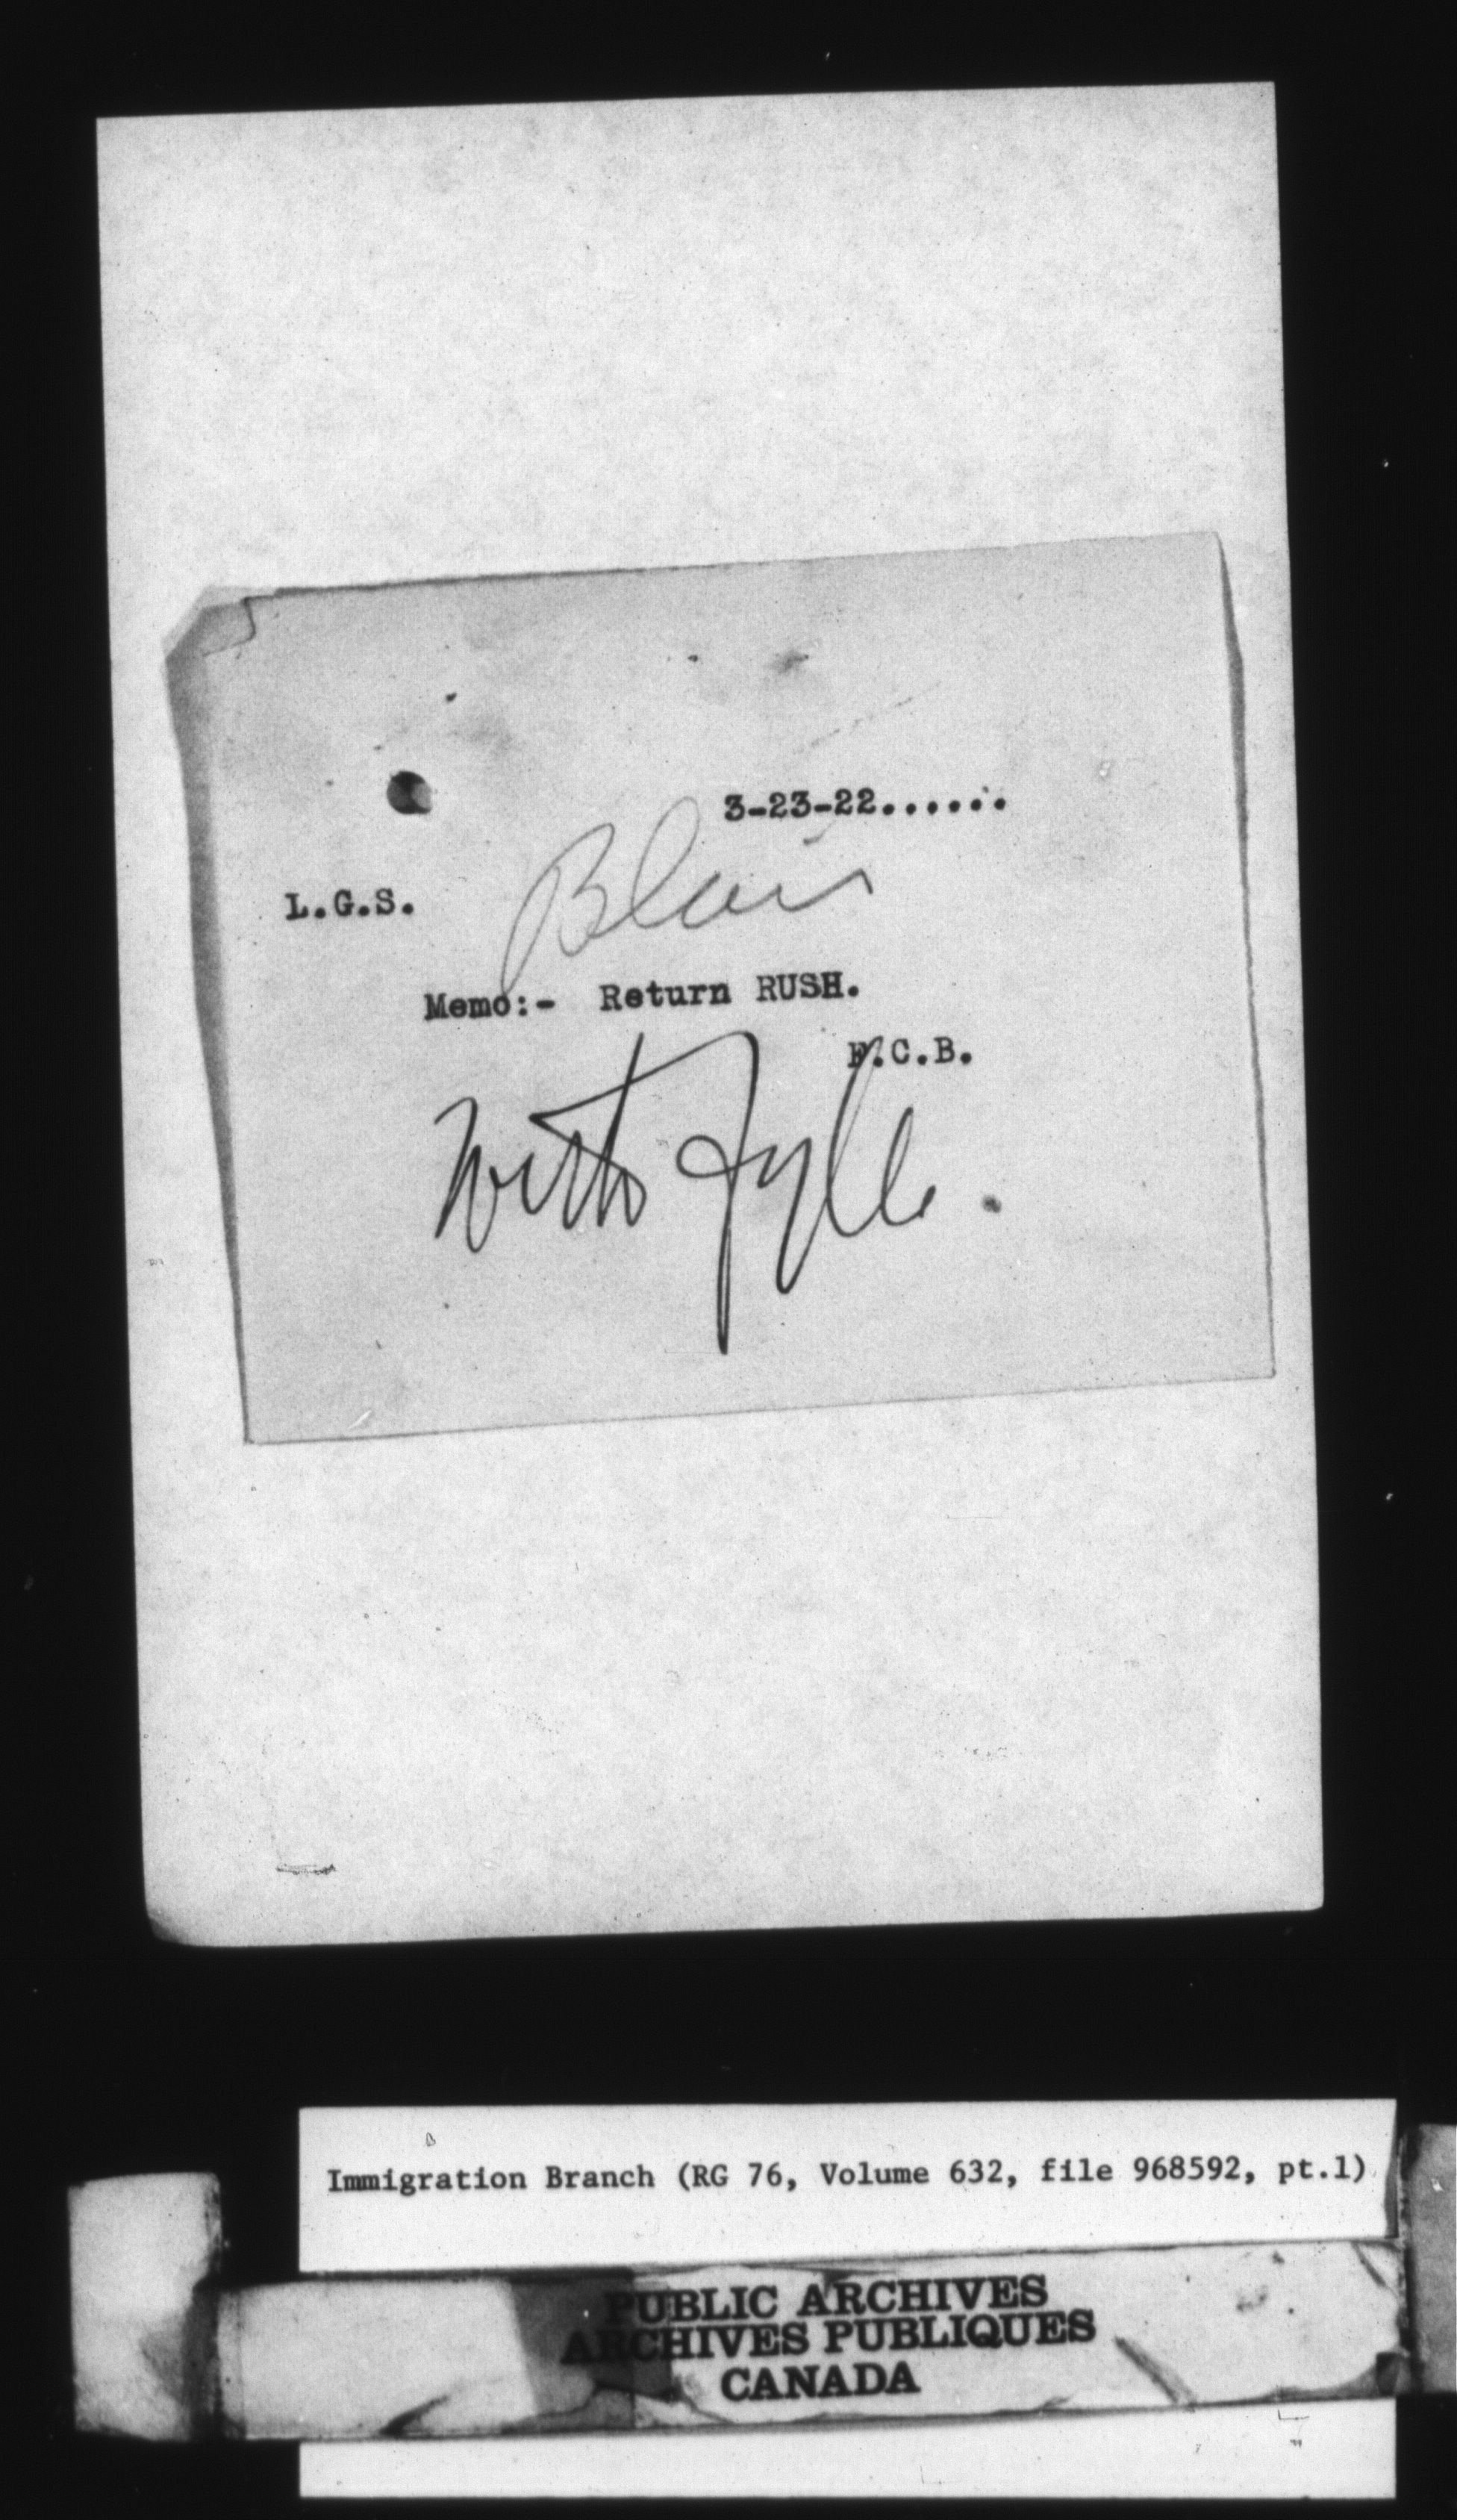 3-23-22......
Blair
L.G.S.
Memo:- Return RUSH.
F.C.B.
with fyle.
Immigration Branch (RG 76, Volume 632, file 968592, pt.1)
PUBLIC ARCHIVES
ARCHIVES PUBLIQUES
CANADA